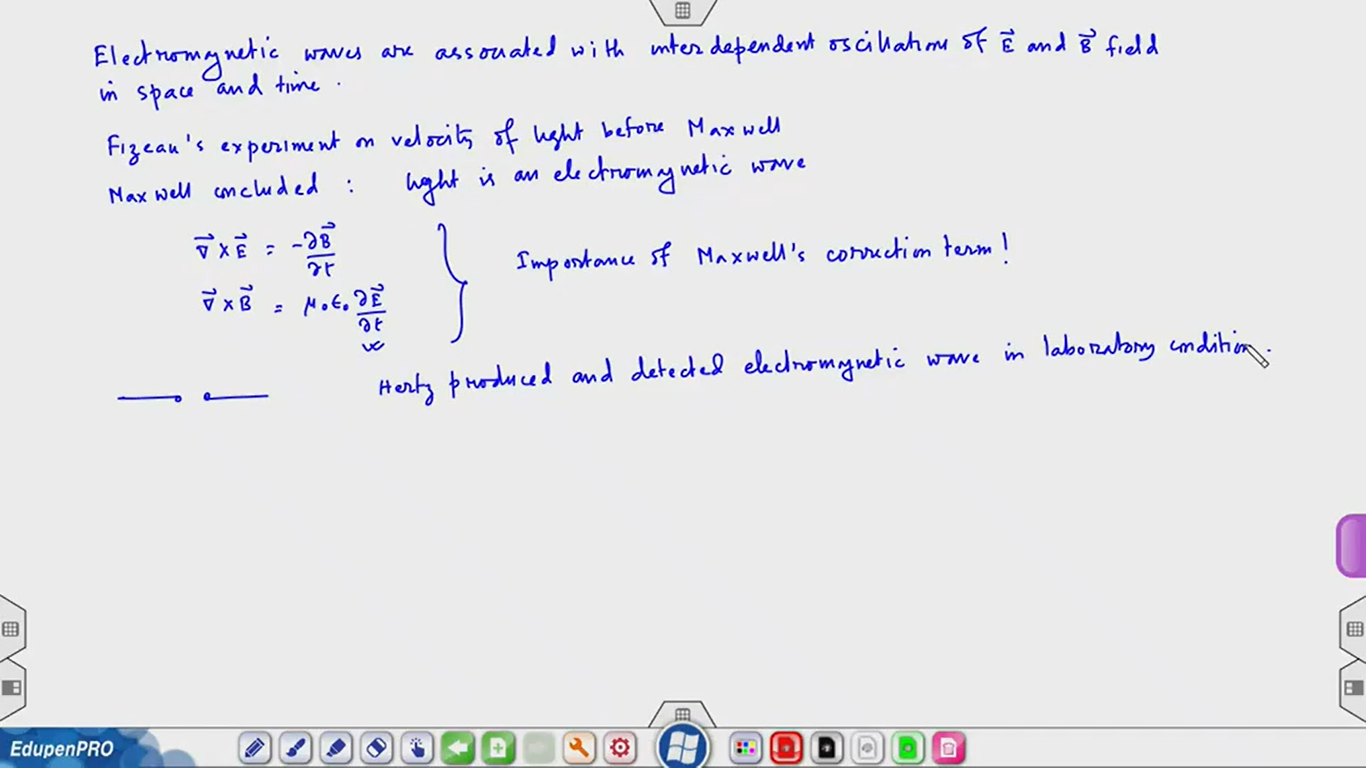 Electromgnetic waves are associated with interdependent oscillation of E⃗ and B⃗ field
in space and time.
Fizeau's experiment on velocity of light before Maxwell
Maxwell concluded : light is an electromgnetic wave
∇⃗ × E⃗ = -∂B⃗/∂t
Importance of Maxwell's correction term!
∇⃗ × B⃗ = μ₀ε₀ ∂E⃗/∂t
Hertz produced and detected electromgnetic wave in laboratory condition.
EdupenPRO